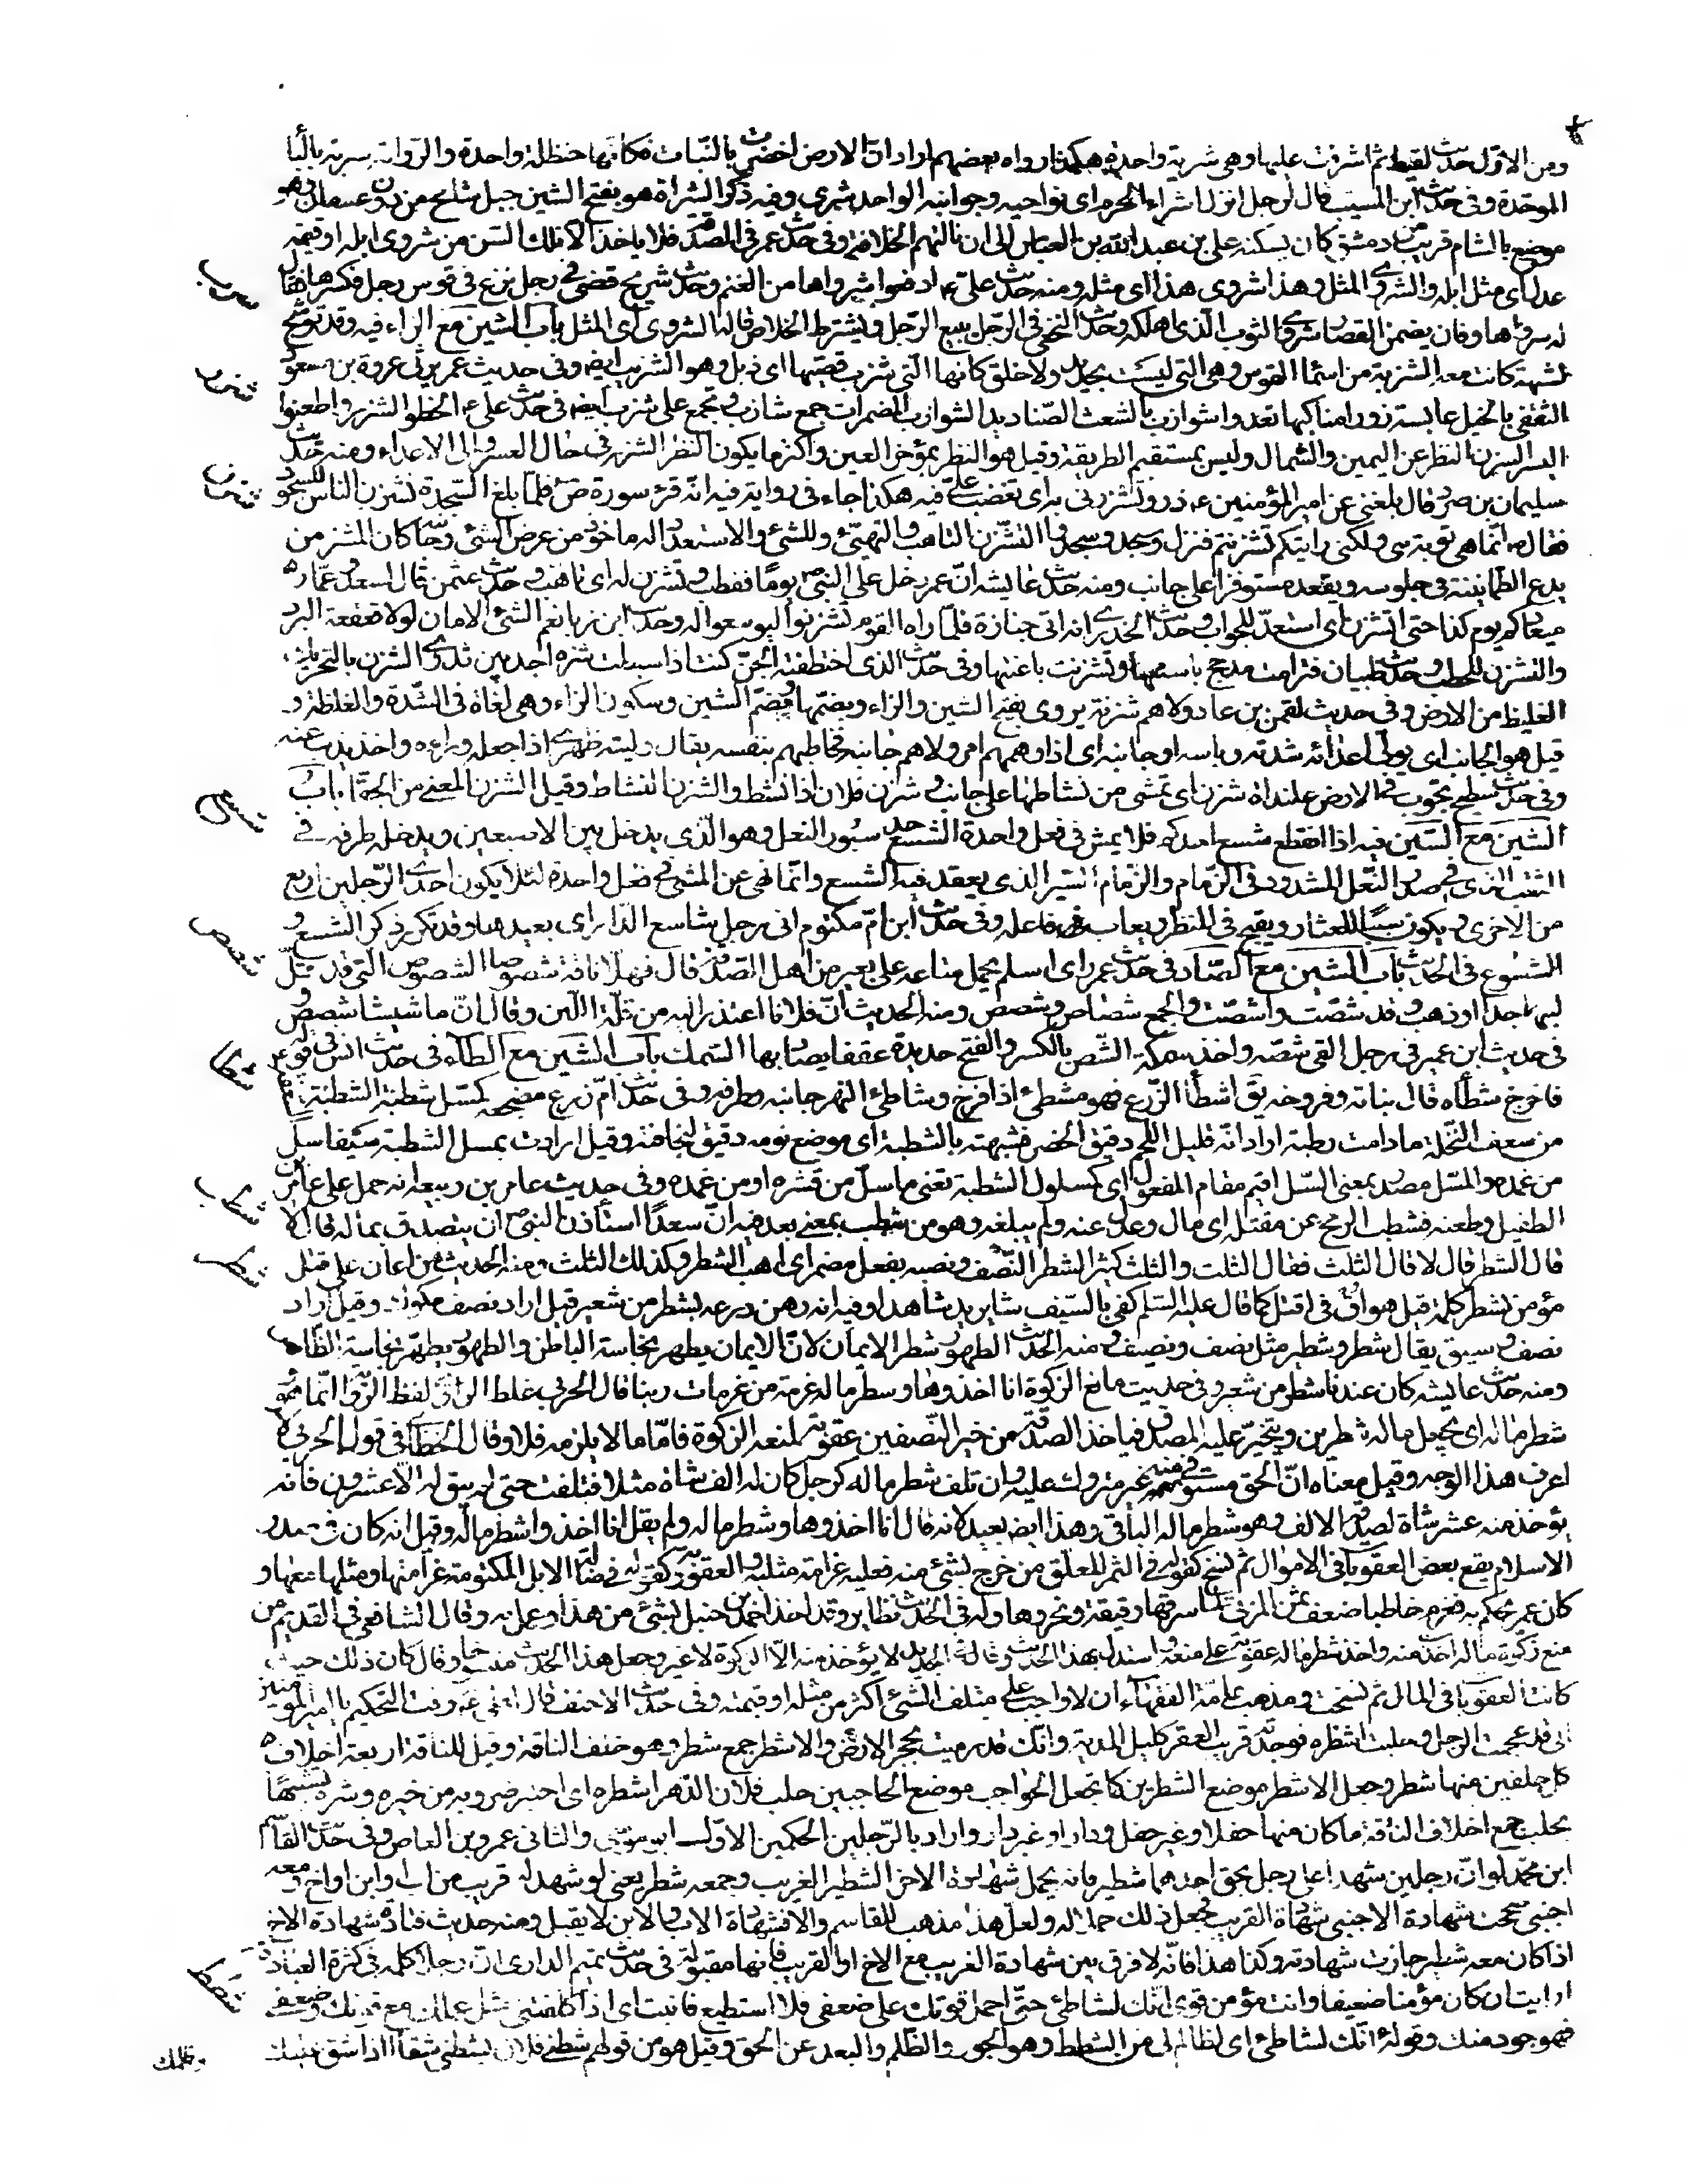 ومن الاوّل حديث لقيط ثم اشرفت عليها وهى شربة واحدة هكذا رواه بعضهم اراد انّ الارض اخضرت بالنّبات فكانّها حنظلة واحدة والرّواية شربة بالبا
الموحّدة وفى حديث ابن المسيّب قال لرجل انزل اشراء الحرم اى نواحيه وجوانبه الواحد شرى وفيه ذكر الشراة هو بفتح الشين جبل شامخ من دون عسفان وهو
موضع بالشام قريب من دمشق كان يسكنه على بن عبد الله بن العباس الى ان اتتهم الخلافة وفى حديث عمر فى الصدقة فلا ياخذ الا تلك السّن من شروى ابله او قيمة
عدل اى مثل ابله والشروى المثل وهذا شروى هذا اى مثله ومنه حديث علىّ ادفعوا شرواها من الغنم وحديث شريح قضى فى رجل نزع فى قوس رجل فكسرها فقال
له شرواها وفان يضمن القصار شروى الثوب الّذى اهلكه وحديث النخعى فى الرّجل يبيع الرّجل ويشترط الخلاص قال له الشروى اى المثل باب الشين مع الزاء فيه وقد توشّح
بشزبة كانت معه الشزبة من اسماء القوس وهى التى ليست بجديد ولا خلق كانها التى شزب قضيبها اى ذبل وهو الشزيب ايضا وفى حديث عمر يرثى عروة بن مسعود
الثقفى بالخيل عابسة زورا مناكبها تعدوا شوازب بالشعث الصّناديد الشوازب المضمرات جمع شازب ويجمع على شزب ايضا فى حديث على الحظوا الشزر واطعنوا
اليسر الشزر النظر عن اليمين والشمال وليس بمستقيم الطريقة وقيل هو النظر بمؤخر العين واكثر ما يكون النظر الشزر فى حال الغضب والى الاعداء ومنه حديث
سليمان بن صرد قال بلغنى عن امير المؤمنين ذرو تشزر لى به اى تغضب علىّ فيه هكذا جاء فى رواية فيه انّه قرء سورة ص فلمّا بلغ السّجدة تشزن الناس للسجود
فقال انّما هى توبة نبى ولكنى رايتكم تشزنتم فنزل وسجد وسجدوا التشزّن التاهب والتهيّئ للشئ والاستعداد له ماخوذ من عرض الشئ وجانبه كان المتشزن
يدع الطمانينة فى جلوسه ويقعد مستوفزا على جانب ومنه حديث عايشه انّ عمر دخل على النبى يومًا فقطب وتشزن له اى تاهب وحديث عثمن قال لسعد وعمّار
ميعادكم يوم كذا حتى اتشزن اى استعدّ للجواب وحديث الخدرى انه اتى جنازة فلمّا راه القوم تشزنوا ليوسعوا له وحديث ابن زياد نعم الشئ الامارة لولا قعقعة البرد
والتشزن للخطب وحديث ظبيان فترامت مذحج باسنتها وتشزنت باعنتها وفى حديث الذى اختطفته الجنّ كنت اذا هبطت شزنا اجده بين ثندوتى الشزن بالتحريك
الغليظ من الارض وفى حديث لقمن بن عاد وولاهم شزنه يروى بفتح الشين والزاء وبضمّهما وبضمّ الشين وسكون الزاء وهى لغات فى الشّدة والغلظة و
قيل هو الجانب اى يولّى اعداءه شدته وباسه او جانبه اى اذا دهمهم امر ولاهم جانبه فحاطهم بنفسه يقال وليته ظهرى اذا جعله وراءه واخذ يذب عنه
وفى حديث سطيح تجوب فى الارض علنداة شزن اى تمشى من نشاطها على جانب وشزن فلان اذا نشط والشزن النشاط وقيل الشزن المعيى من الحفا باب
الشين مع السّين فيه اذا انقطع شسع احدكم فلا يمش فى نعل واحدة الشسع احد سيور النعل وهو الّذى يدخل بين الاصبعين ويدخل طرفه فى
الثقب الذى فى صدر النّعل المشدود فى الزمام والزمام السّير الذى يعقد فيه الشسع وانّما نهى عن المشى فى نعل واحدة لئلا يكون احدى الرّجلين ارفع
من الاخرى ويكون سببًا للعثار ويقبح فى المنظر ويعاب فاعله وفى حديث ابن امّ مكتوم انى رجل شاسع الدّار اى بعيدها وقد تكرر ذكر الشسع و
الشسوع فى الحديث باب الشين مع الصّاد فى حديث عمر راى اسلم يحمل متاعه على بعير من اهل الصّدقة قال فهلّا ناقة شصوصا الشصوص التى قد قلّ
لبنها جدا او ذهب وقد شصّت واشصّت والجمع شصائص وشصص ومنه الحديث انّ فلانا اعتذر اليه من قلّة اللّبن وقال انّ ماشيتنا شصص
فى حديث ابن عمير فى رجل القى شصّه واخذ سمكة الشّص بالكسر والفتح حديدة عقفاء يصاد بها السّمك باب الشين مع الطاء فى حديث انس فى قوله
فاخرج شطأه قال نباته وفروخه يق اشطأ الزّرع فهو مشطئ اذا فرخ وشاطئ النهر جانبه وطرفه وفى حديث امّ زرع مضجعه كمسل شطبة الشطبة
من سعف النّخلة ما دامت رطبة اراد انّه قليل اللحم دقيق الخصر فشبهته بالشطبة اى موضع نومه دقيق لنحافته وقيل ارادت بمسل الشطبة سيفا سلّ
من غمده والمسّل مصدر بمعنى السّل اقيم مقام المفعول اى كمسلول الشطبة تعنى ما سلّ من قشره او من غمده وفى حديث عامر بن ربيعة انه حمل على عامر بن
الطفيل وطعنه فشطب الرمح عن مقتله اى مال وعدل عنه ولم يبلغه وهو من شطب بمعنى بعد فيه انّ سعدًا استأذن النبى ان يتصدق بماله قال لا
قال الشطر قال لا قال الثلث فقال الثلث والثلث كثير الشطر النّصف ونصبه بفعل مضمر اى اهب الشطر وكذلك الثلث ومنه الحديث من اعان على قتل
مؤمن بشطر كلمة قيل هو ان يقول اق فى اقتل كما قال عليه السّلم كفى بالسّيف شا يريد شاهدا وفيه انه رهن درعه بشطر من شعير قيل اراد نصف مكوك وقيل اراد
نصف وسق يقال شطر وشطير مثل نصف ونصيف ومنه الحديث الطهور شطر الايمان لانّ الايمان يطهر نجاسة الباطن والطهور يطهّر نجاسة الظّاهر
ومنه حديث عايشه كان عندنا شطر من شعير وفى حديث مانع الزكوة انا اخذوها وشطر ماله غرمة من غرمات ربنا قال الحربى غلط الراوى لفظ الرّواية انّما هو
شطر ماله اى يجعل ماله شطرين ويتخيّر عليه المصدق فياخذ الصدقة من خير النّصفين عقوبة لمنعه الزكوة فامّا ما لا يلزمه فلا وقال الخطابى فى قول الحربى لا
اعرف هذا الوجه وقيل معناه انّ الحق مستوفى منه غير متروك عليه وان تلف شطر ماله كرجل كان له الف شاة مثلا فتلفت حتى لم يبق له الّا عشرون فانه
يؤخذ منه عشر شاة لصدقة الالف وهو شطر ماله الباقى وهذا ايضا بعيد لانه قال انا اخذوها وشطر ماله ولم يقل انا اخذوا شطر ماله وقيل انه كان فى صدر
الاسلام يقع بعض العقوبات فى الاموال ثم نسخ كقوله فى الثمر المعلّق من خرج بشئ منه فعليه غرامة مثليه والعقوبة وكقوله فى ضالّة الابل المكتومة غرامتها ومثلها معها و
كان عمر يحكم به فغرم حاطبا ضعف ثمن ناقة المزنى لما سرقها رقيقه ونحروها وله فى الحديث نظاير وقد اخذ احمد بن حنبل بشئ من هذا وعمل به وقال الشافعى فى القديم من
منع زكوة ماله اخذت منه واخذ شطر ماله عقوبة على منعه واستدل بهذا الحديث وقال فى الجديد لا يؤخذ منه الّا الزكوة لا غير وجعل هذا الحديث منسوخا وقال كان ذلك حيث
كانت العقوبات فى المال ثم نسخت ومذهب عامّة الفقهاء ان لا واجب على متلف الشئ اكثر من مثله او قيمته وفى حديث الاحنف قال لعلى وقت التحكيم يا امير المومنين
انى قد عجمت الرجل وحلبت اشطره فوجدته قريب القعر كليل المدية وانّك قد رميت بحجر الارض والاشطر جمع شطر وهو خلف الناقة وقيل للناقة اربعة اخلاف
كل خلفين منها شطر وجعل الاشطر موضع الشطرين كما تجعل الحواجب موضع الحاجبين حلب فلان الدّهر اشطره اى اختبر ضروبه من خيره وشره تشبيهًا
بحلب جمع اخلاف النّاقة ما كان منها حفلا وغير حفل ودارا وغير دار واراد بالرّجلين الحكمين الاوّل ابو موسى والثانى عمرو بن العاص وفى حديث القاسم
ابن محمّد لو انّ رجلين شهدا على رجل بحق احدهما شطير فانه يحمل شهادة الاخر الشطير الغريب وجمعه شطر يعنى لو شهد له قريب من اب او ابن او اخ ومعه
اجنبى صححت شهادة الاجنبى شهادة القريب فجعل ذلك حملا له ولعلّ هذا مذهب للقاسم والا فشهادة الاب والابن لا يقبل ومنه حديث قتادة شهادة الاخ
اذا كان معه شطير جازت شهادته وكذا هذا فانّه لا فرق بين شهادة الغريب مع الاخ او القريب فانها مقبولة فى حديث تميم الدارى انّ رجلا كلّمه فى كثرة العبادة
ارايت ان كان مؤمنا ضعيفا وانت مؤمن قوى انّك لشاطئ حتّى احمل قوتك على ضعفى فلا استطيع فانبت اى اذا كلفتنى مثل عملك مع قوتك وضعفى
فهو جور منك وقوله انّك لشاطئ اى لظالم لى من الشطط وهو الجور والظّلم والبعد عن الحق وقيل هو من قولهم شطنى فلان يشطنى شطأ اذا شق عليك
وظلمك
شرب
شزن
شسع
شصص
شطا
شطب
شطر
شطط